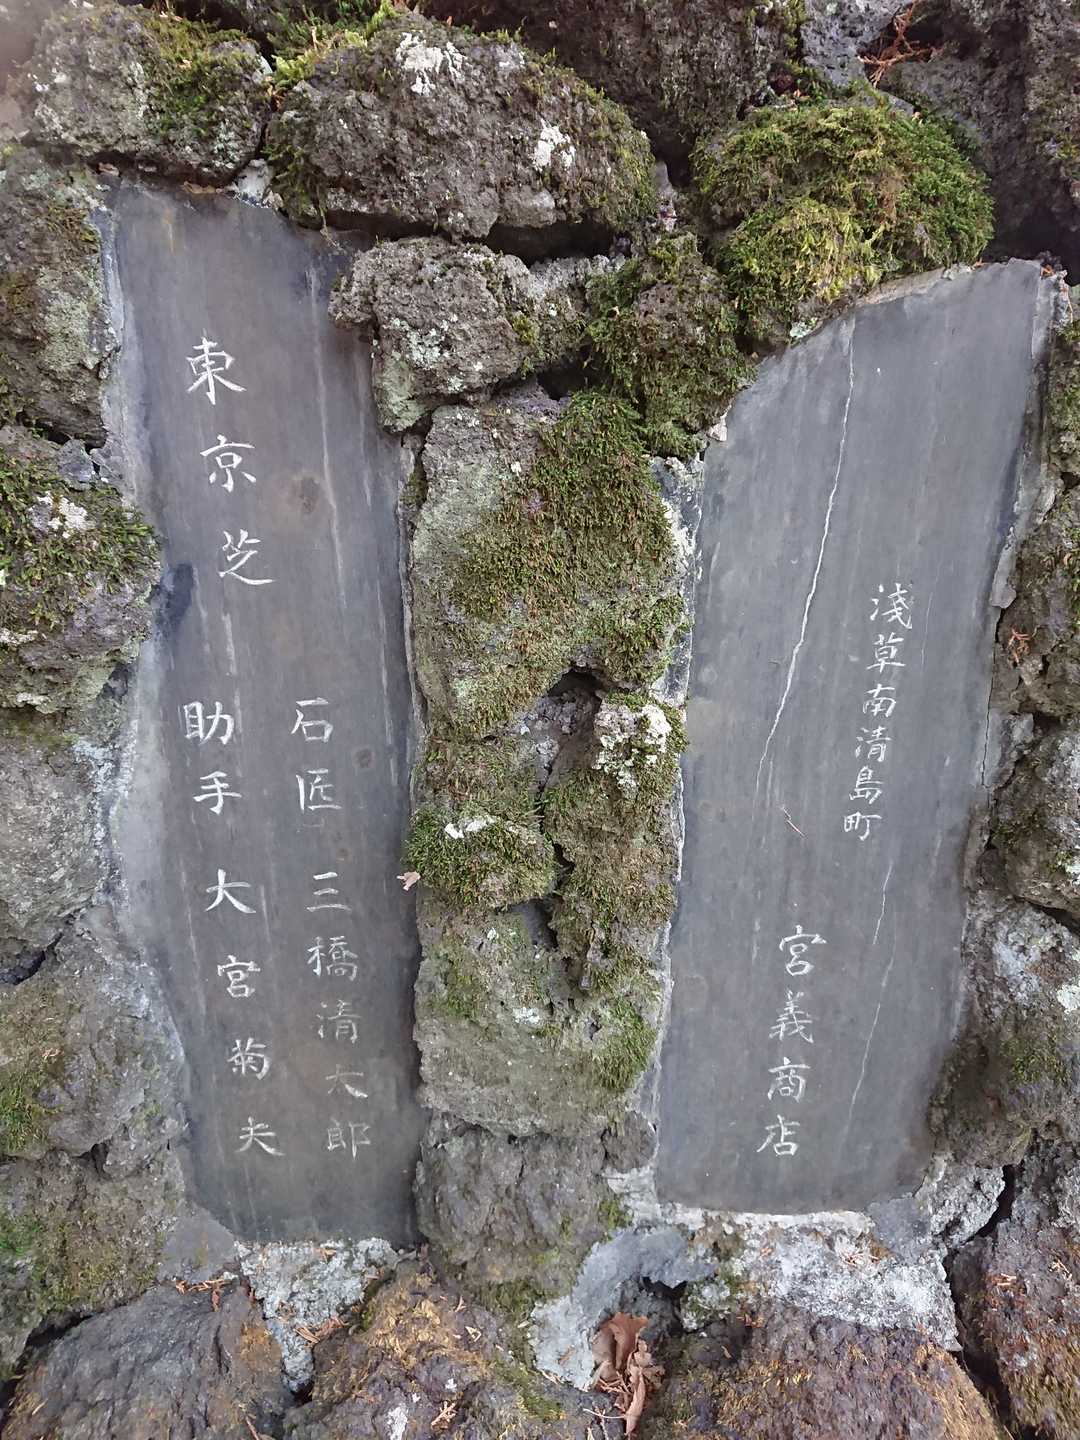 淺草南清島町
宮義商店
東京芝
石匠 三橋清太郎
助手 大宮菊夫